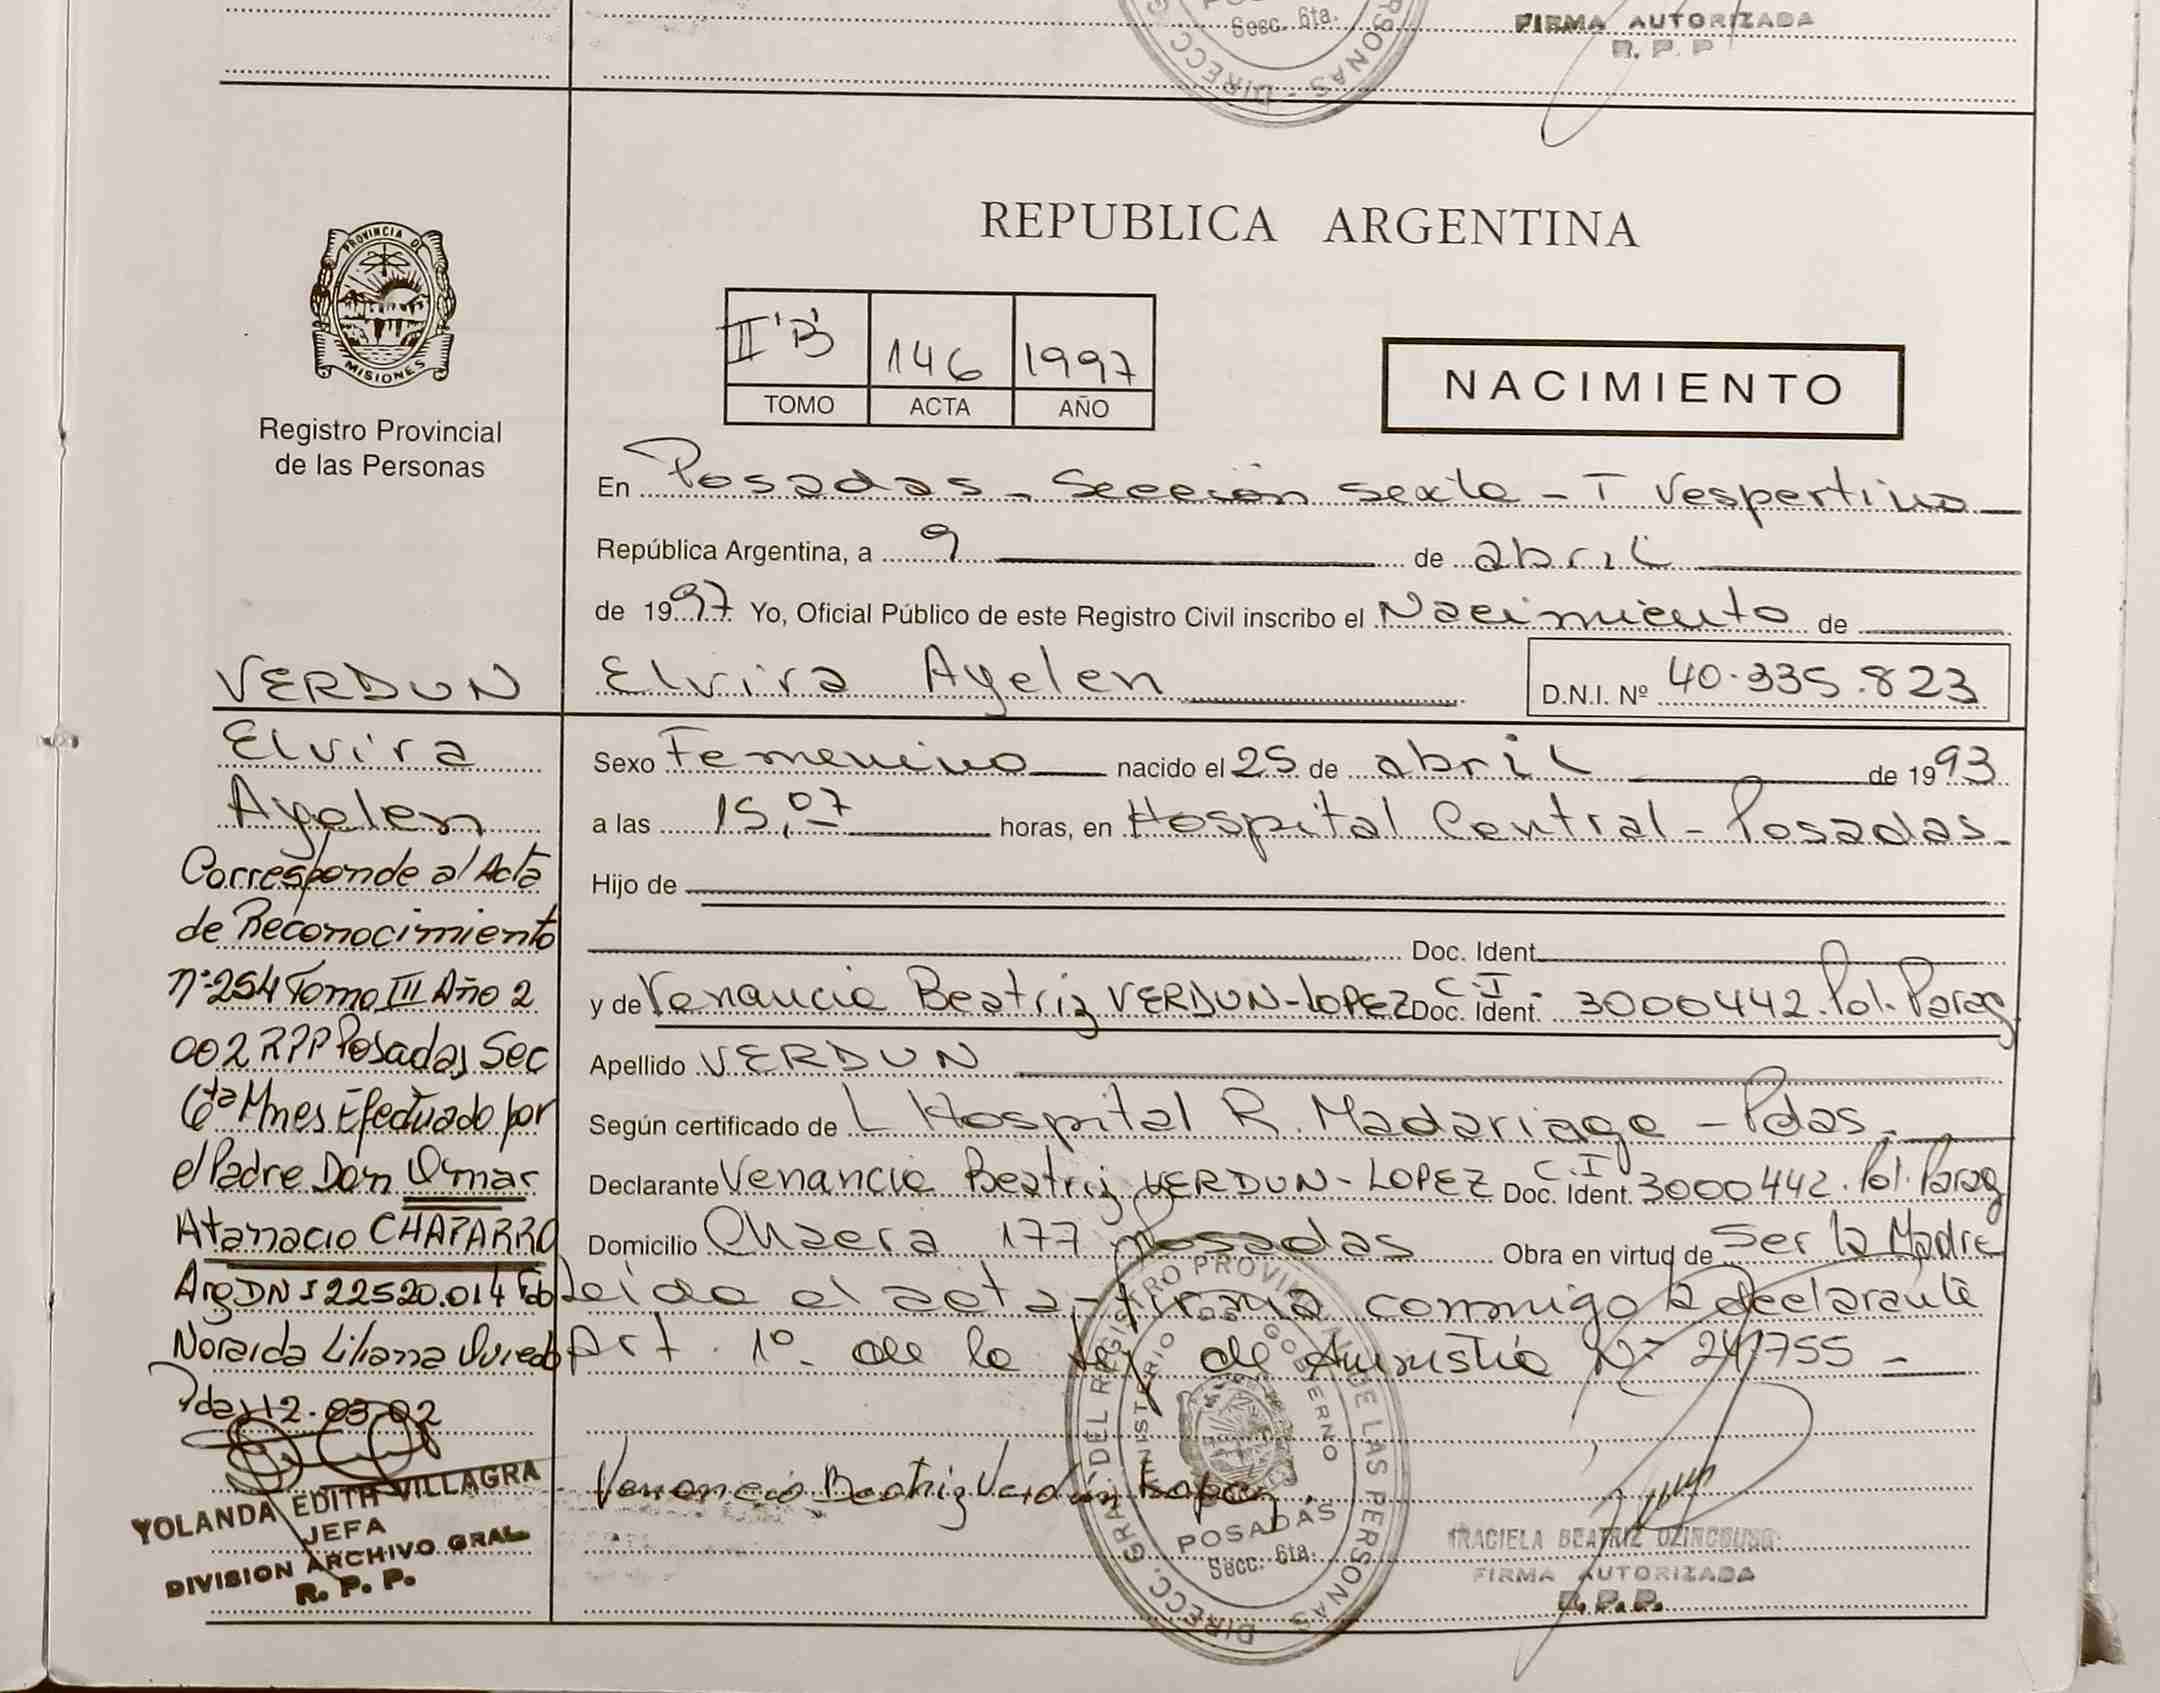 Secc. 6ta.
FIRMA AUTORIZADA
R. P. P
PROVINCIA DE
MISIONES
Registro Provincial
de las Personas
REPUBLICA ARGENTINA
II 'B' 146 1997
TOMO ACTA AÑO
NACIMIENTO
En Posadas - Sección sexta - T Vespertino
República Argentina, a 9 de abril
de 1997 Yo, Oficial Público de este Registro Civil inscribo el Nacimiento de
Elvira Ayelen D.N.I. Nº 40.335.823
Sexo Femenino nacido el 25 de abril de 1993
a las 15,07 horas, en Hospital Central - Posadas
Hijo de
Doc. Ident.
y de Venancia Beatriz VERDUN-LOPEZ Doc. Ident. C.I. 3000442. Pol. Parag
Apellido VERDUN
Según certificado de L Hospital R. Madariaga - Pdas.
Declarante Venancia Beatriz VERDUN-LOPEZ Doc. Ident. C.I 3000442. Pol. Parag
Domicilio 177 Posadas Obra en virtud de Ser la Madre
Leída el acta firma conmigo la declarante
Art. 1º de la Ley de Amnistía Nº 24755
Venancia Beatriz Verdun Lopez
VERDUN
Elvira
Ayelen
Corresponde al Acta
de Reconocimiento
nº 254 Tomo III Año 2
002 RPP Posadas Sec
6ta Mnes Efectuado por
el Padre Don Omar
Atanacio CHAPARRO
Arg DNI 22520.014 Fdo
Noraida Liliana Oviedo
Pdas 12-03-02
YOLANDA EDITH VILLAGRA
JEFA
DIVISION ARCHIVO GRAL
R. P. P.
DIRECC. GRAL DEL REGISTRO PROVINCIAL DE LAS PERSONAS
MINISTERIO DE GOBIERNO
POSADAS
Secc. 6ta.
GRACIELA BEATRIZ
FIRMA AUTORIZADA
R.P.P.